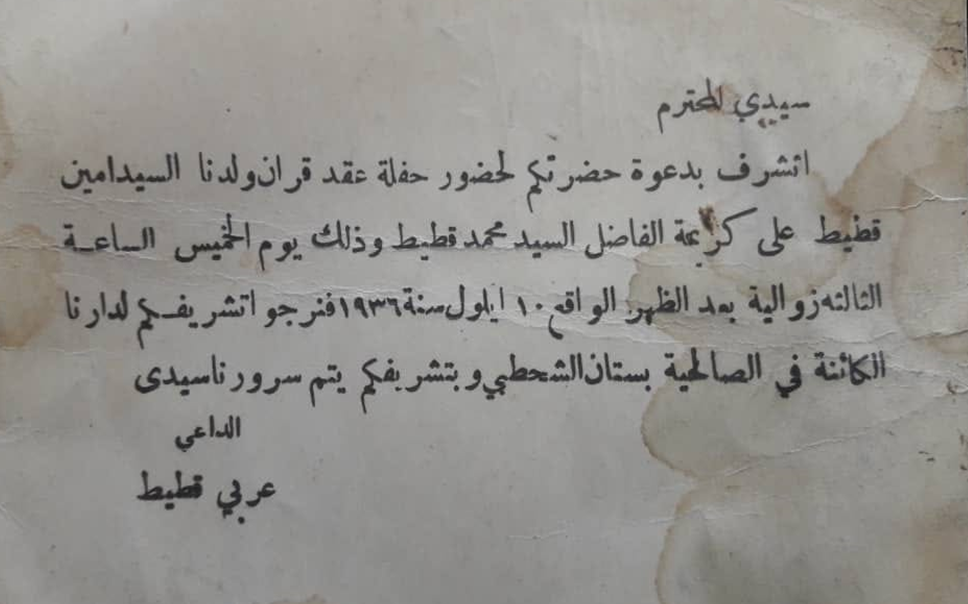 سيدي المحترم
اتشرف بدعوة حضرتكم لحضور حفلة عقد قران ولدنا السيد امين
قطيط على كريمة الفاضل السيد محمد قطيط وذلك يوم الخميس الساعة
الثالثه زوالية بعد الظهر الواقع ١٠ ايلول سنة ١٩٣٦ فنرجوا تشريفكم لدارنا
الكائنة في الصالحية بستان الشحطبي وبتشريفكم يتم سرورنا سيدى
الداعي
عربي قطيط